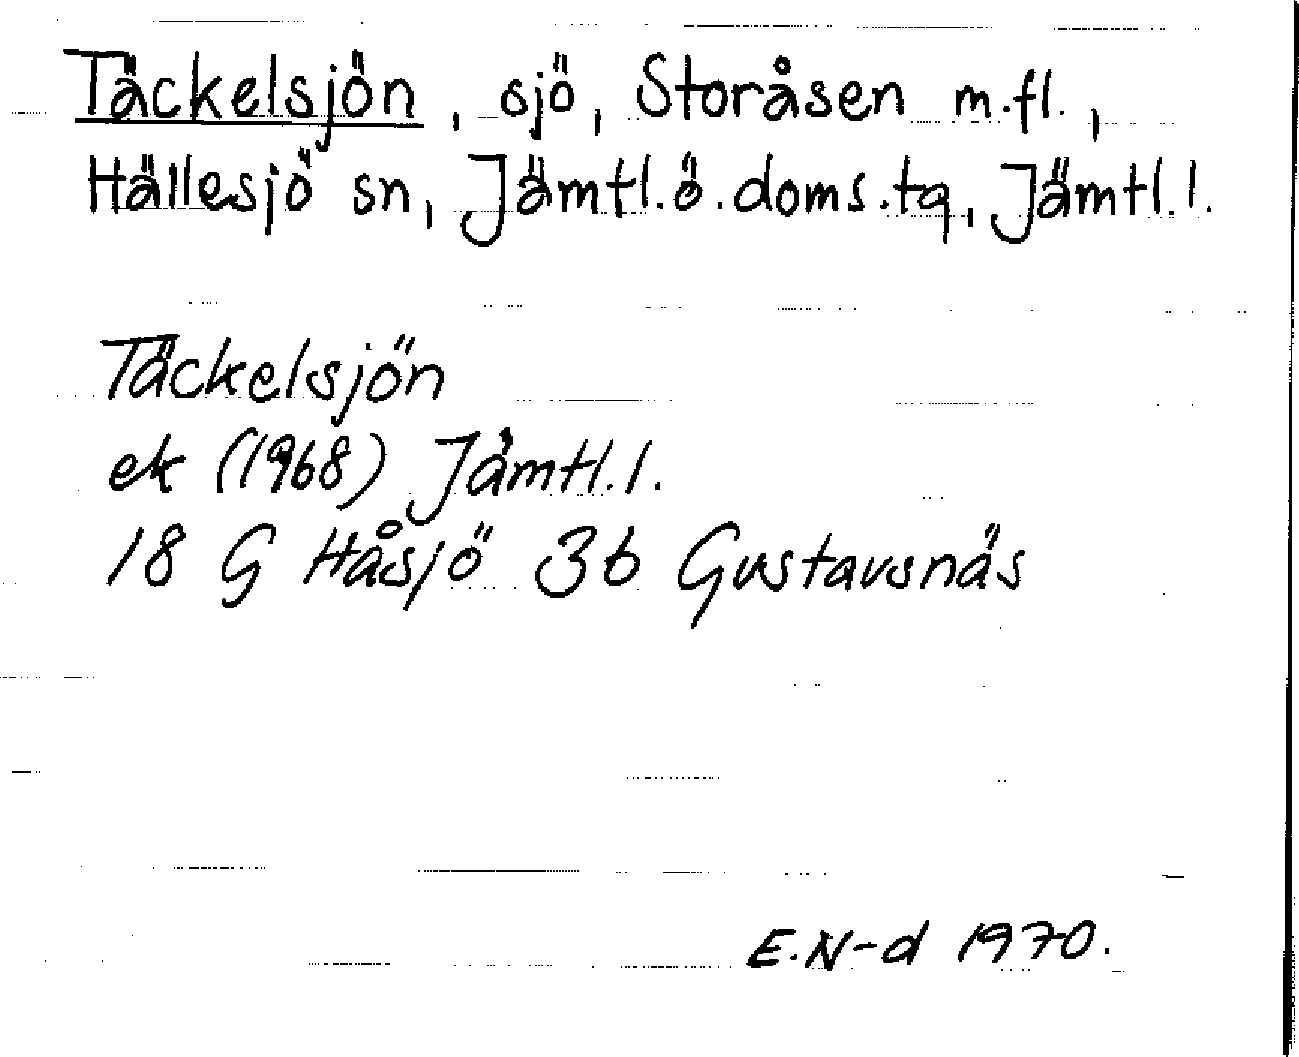 Täckelsjön, sjö, Storåsen m.fl.,
Hällesjö sn, Jämtl.ö.doms.tg, Jämtl.l.
Täckelsjön
ek (1968) Jämtl.l.
18 G Håsjö 3b Gustavsnäs
E.N-d 1970.